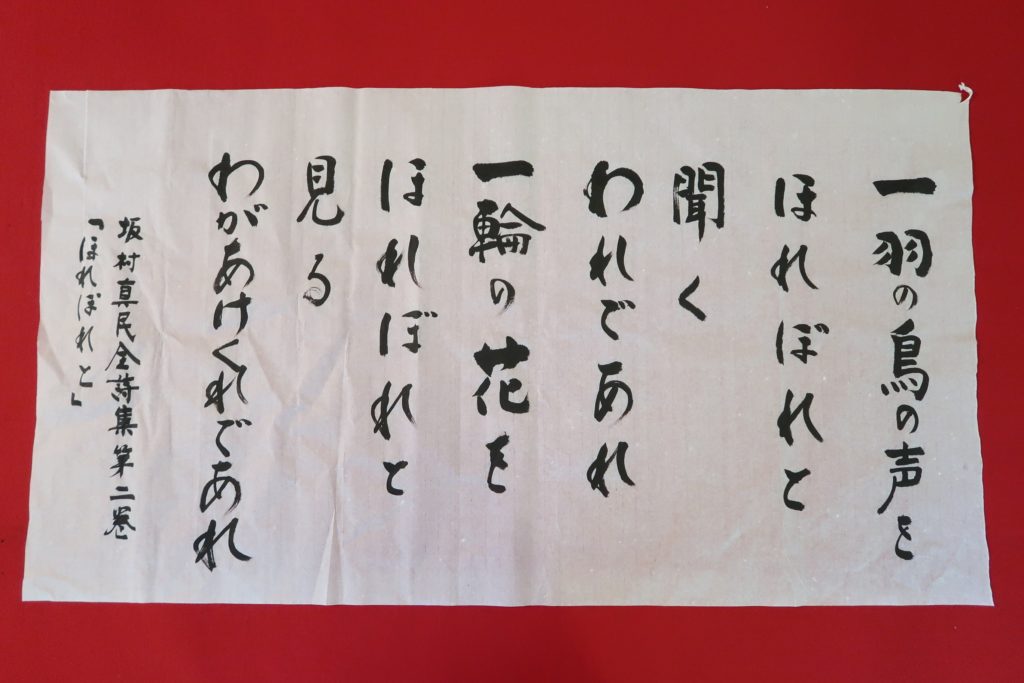 一羽の鳥の声を
ほれぼれと
聞く
われであれ
一輪の花を
ほれぼれと
見る
わがあけくれであれ
坂村真民全詩集第二巻
「ほれぼれと」